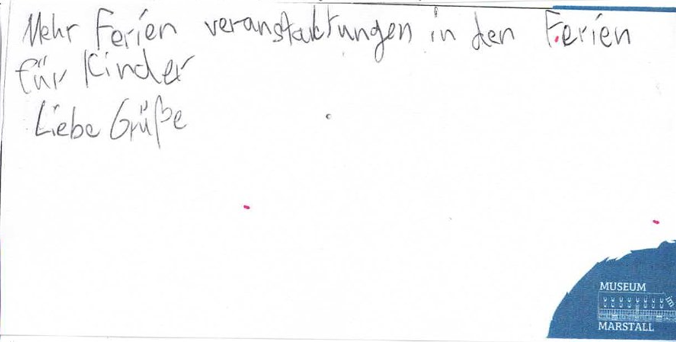 Mehr Ferien veranstaltungen in den Ferien
für Kinder
Liebe Grüße
MUSEUM
MARSTALL